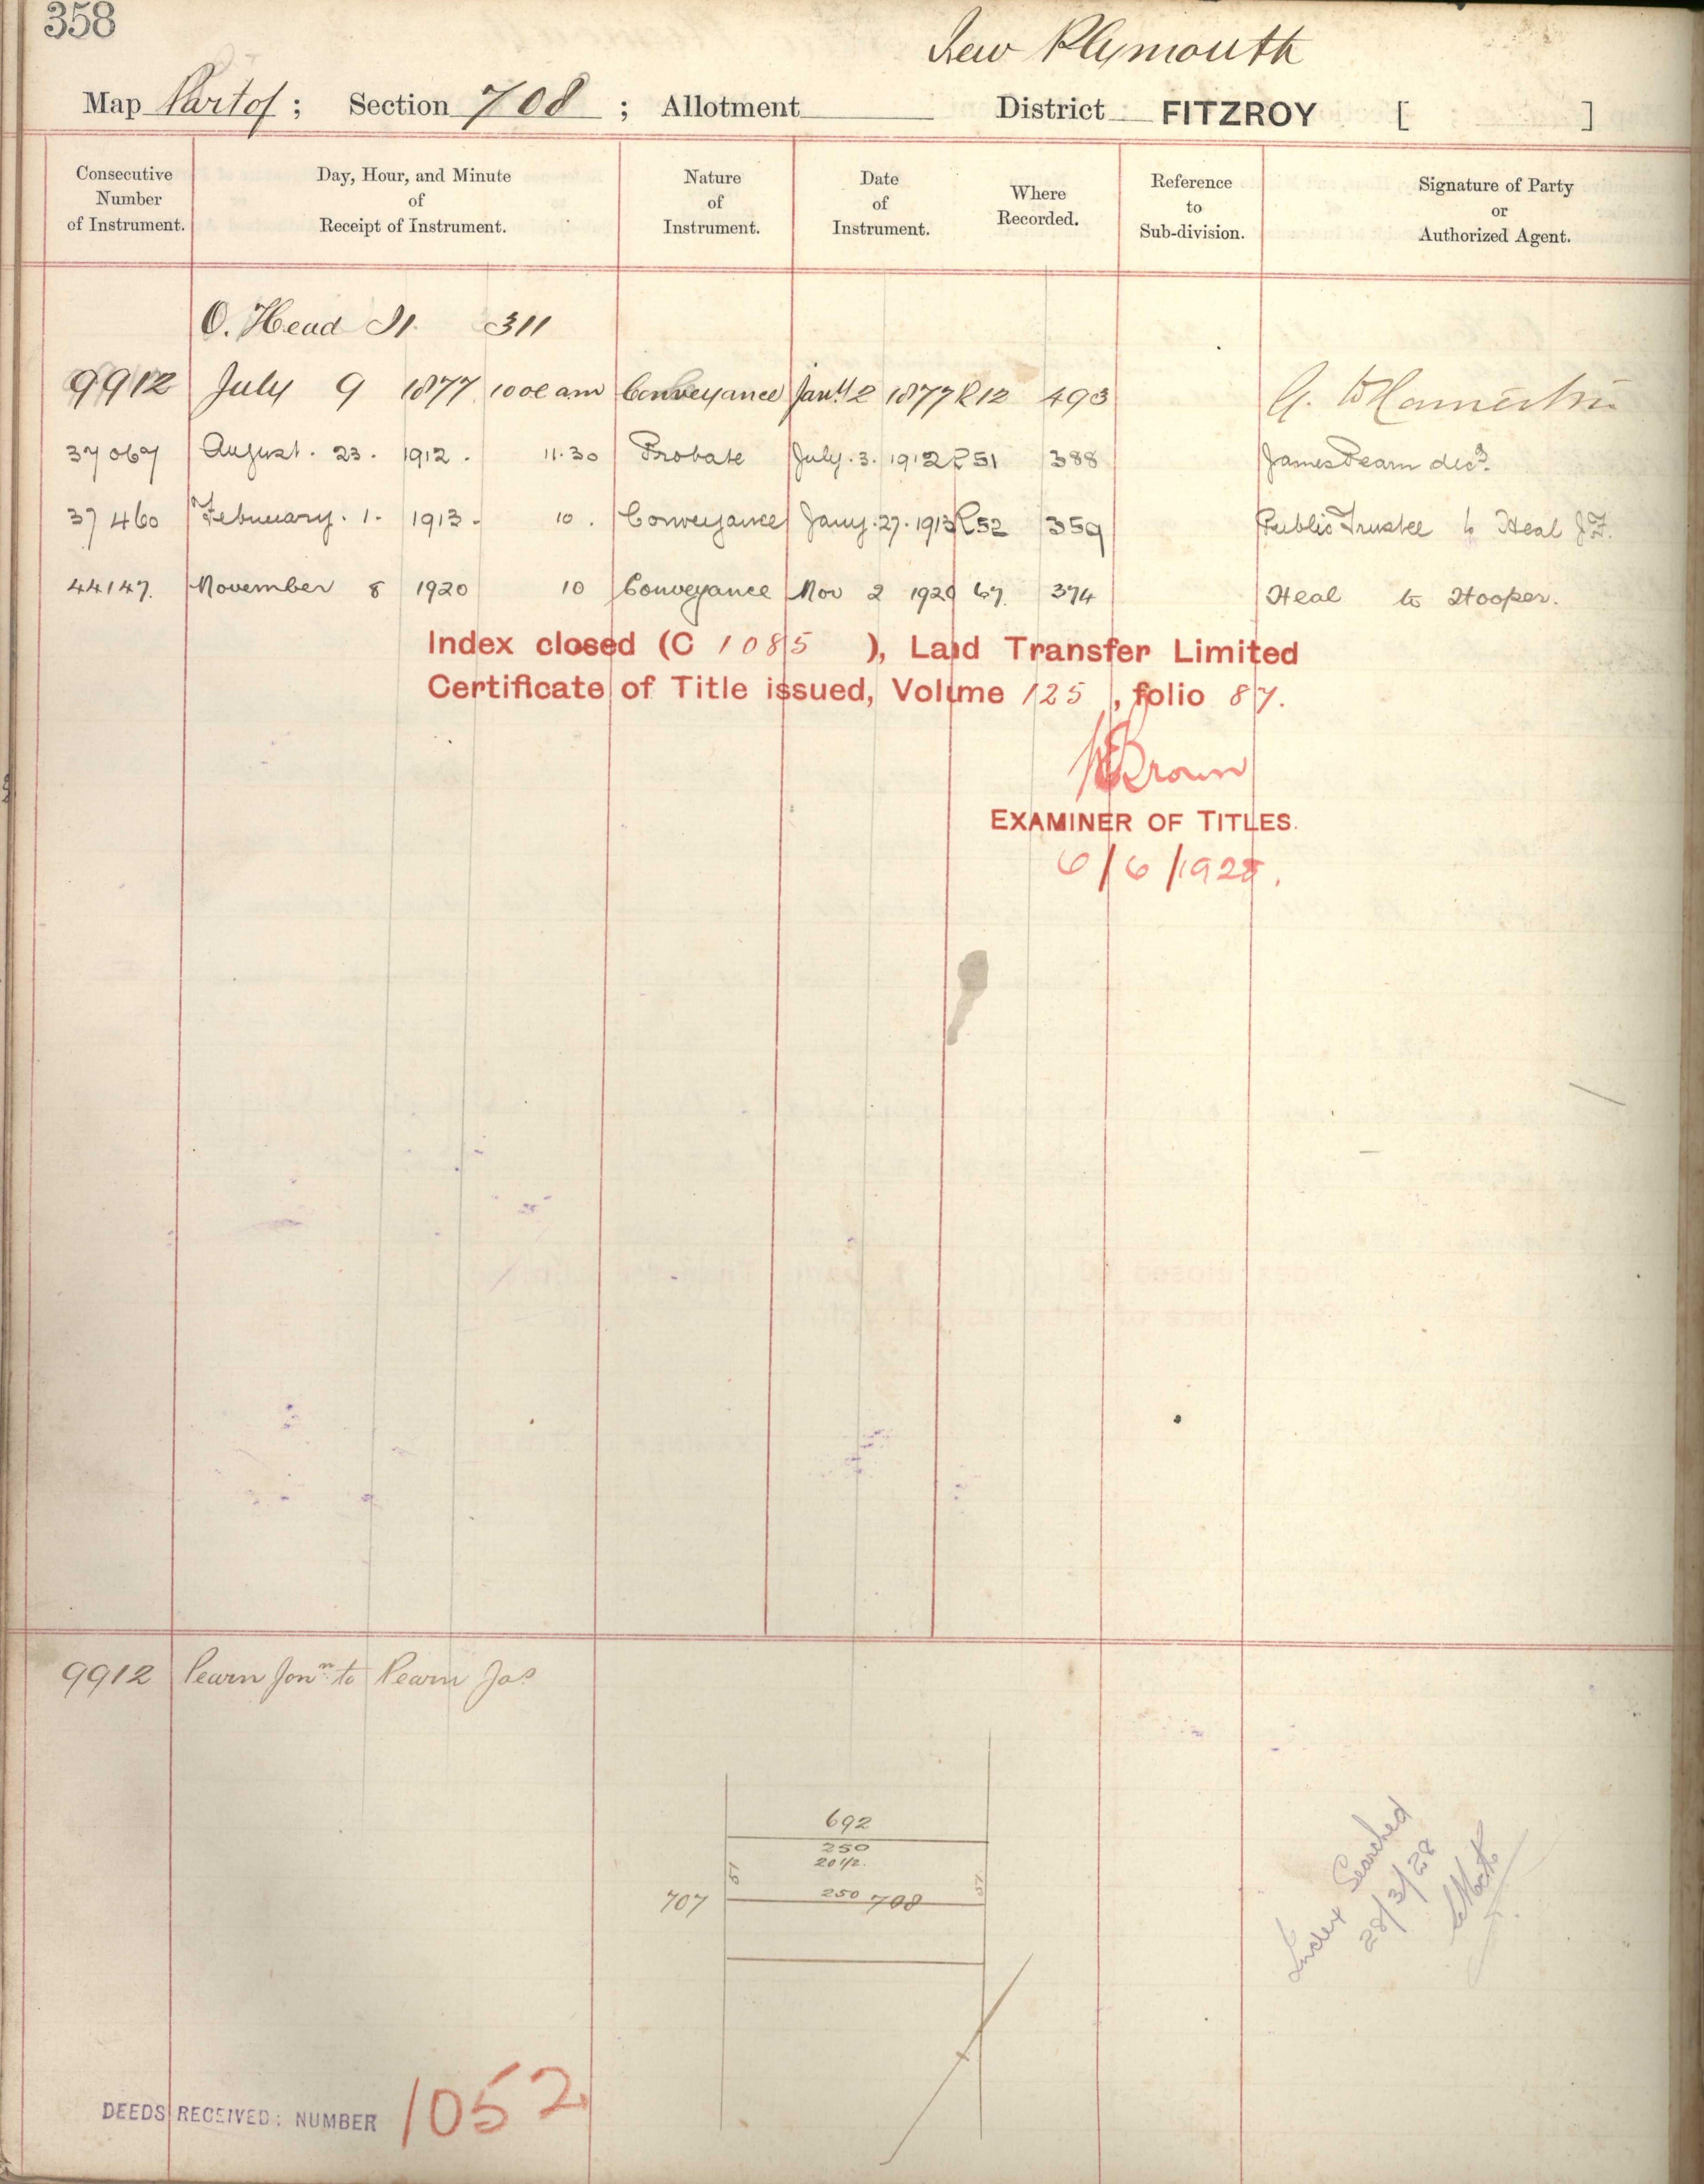 358
New Plymouth
Map Part of ; Section 708 ; Allotment District FITZROY [ ]
Consecutive Number of Instrument.
Day, Hour, and Minute of Receipt of Instrument.
Nature of Instrument.
Date of Instrument.
Where Recorded.
Reference to Sub-division.
Signature of Party or Authorized Agent.
O. Head I1. 311
9912 July 9 1877 10 oc am Conveyance Jany 2 1877 R12 493
37069 August. 23. 1912. 11.30 Probate July. 3. 1912 R51 388 James Pearn decd.
37460 February. 1. 1913. 10. Conveyance Jany. 27. 1913 R52 359 Public Trustee to Heal J.F.
44147. November 8 1920 10 Conveyance Nov 2 1920 67. 374 Heal to Hooper.
Index closed (C 1085 ), Land Transfer Limited
Certificate of Title issued, Volume 125 , folio 87.
Brown
EXAMINER OF TITLES.
6/6/1928.
9912 Pearn Jonn to Pearn Jas
692
250
20 1/2.
57 57
250
707 708
Index Searched
28/3/28
DEEDS RECEIVED: NUMBER 1052